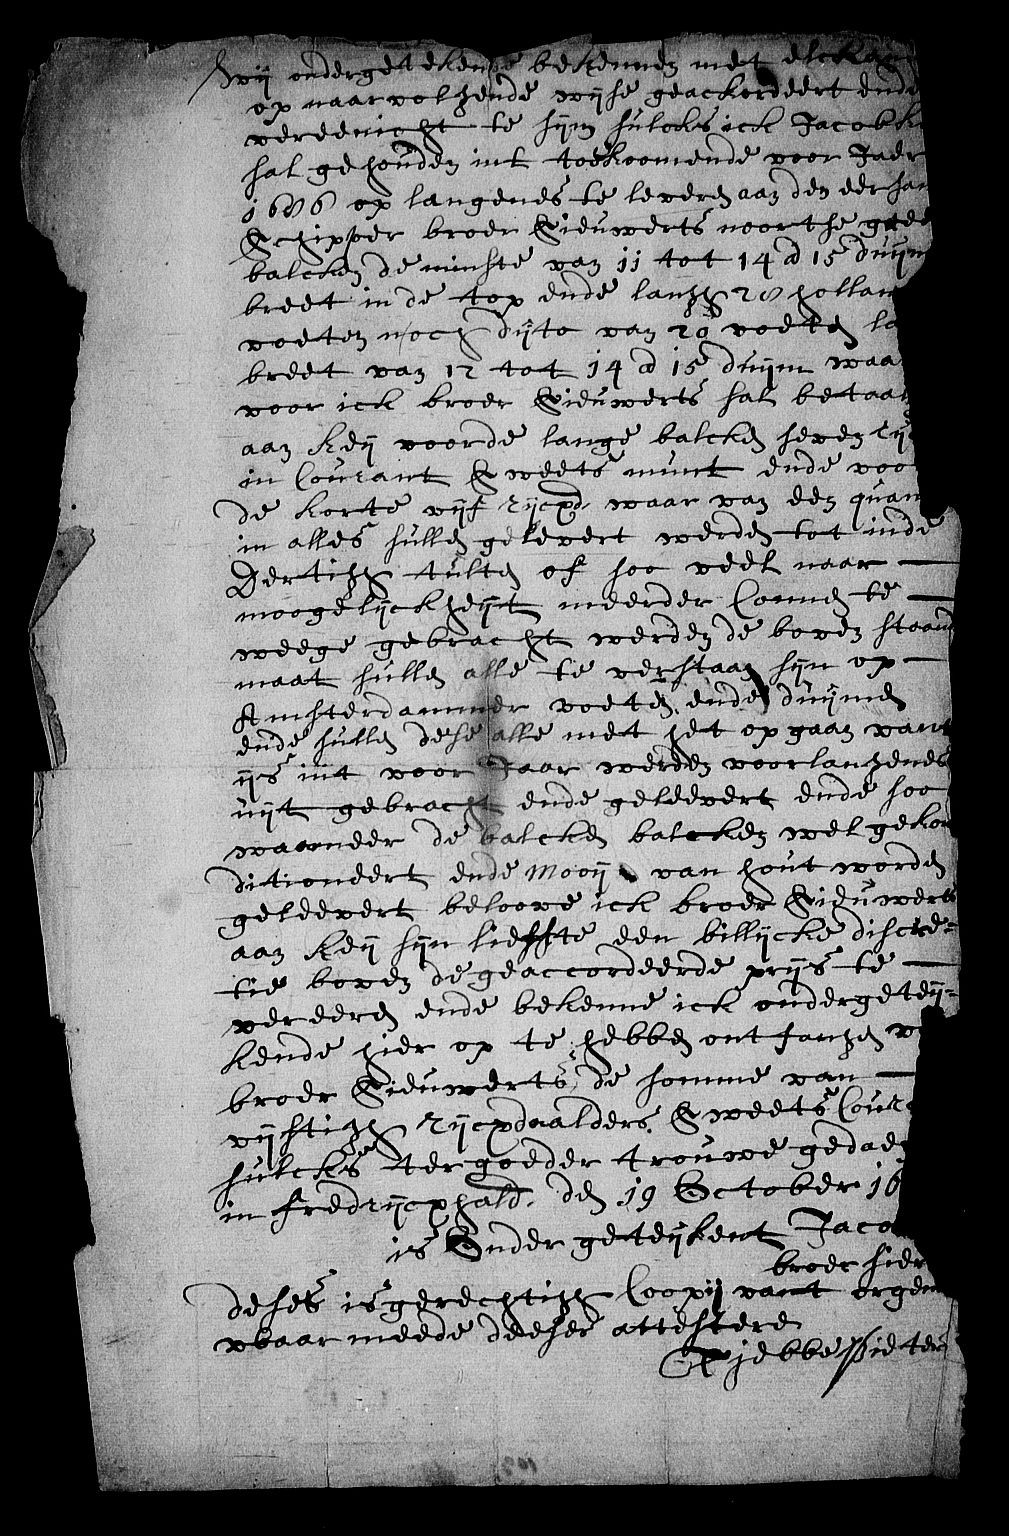 Wij ondergetekende bekennen met elckan
op naarvolgende wijse geackordeert ende
vereenicht te sijm sulcks ick Jacob ke
sal gehouden int toekoomende voor Jaer
1686 op langenes te leveren aan den eersam
Schipper broer Sieuwerts noortse greene
balcken de minste van 11 tot 14 a 15 duijm
breet in de top ende langh 28 hollan
voeten noch dijto van 20 voeten la
breet van 12 tot 14 a 15 duijm waar
voor ick broer Sieuwerts sal betaal
aan keij voor de lange balcken seven rijc
in Courant Sweets munt ende voor
de korte vijf rijcxd. waar van een quan
in alles sullen gelevert werden tot inde
Dertigh tulten of soo veel naar —
moogelijckheijt meerder Connen te —
weege gebracht werden de boven staand
maat sullen alle te verstaan sijn op —
Amsterdammer voeten ende duijmen
ende sullen dese alle met het opgaan vant
ijs int voor Jaar werden voor langhenes
uijt gebracht ende geleevert ende soo
waanneer de balcken balcken wel gekon
ditioneert ende mooij van hout worden
geleevert beloove ick broer Sieuwerts
aan keij sijn lieffte een billijcke discre-
tie boven de geaccordeerde prijs te —
vereeren ende bekenne ick ondergeteij-
kende hier op te hebben ontfangen v
broer Sieuwerts de somme van —
vijftigh rijcxdaalders Sweets Cour
sulcks ter goeder trouwe gedaen
in fredrijcxhald. den 19 October 16
is Onder geteijkent Jaco
broer sier
deses is gerechtigh Coopij vant orgen
waar meede deeser attestere
Tjebbe Pieters